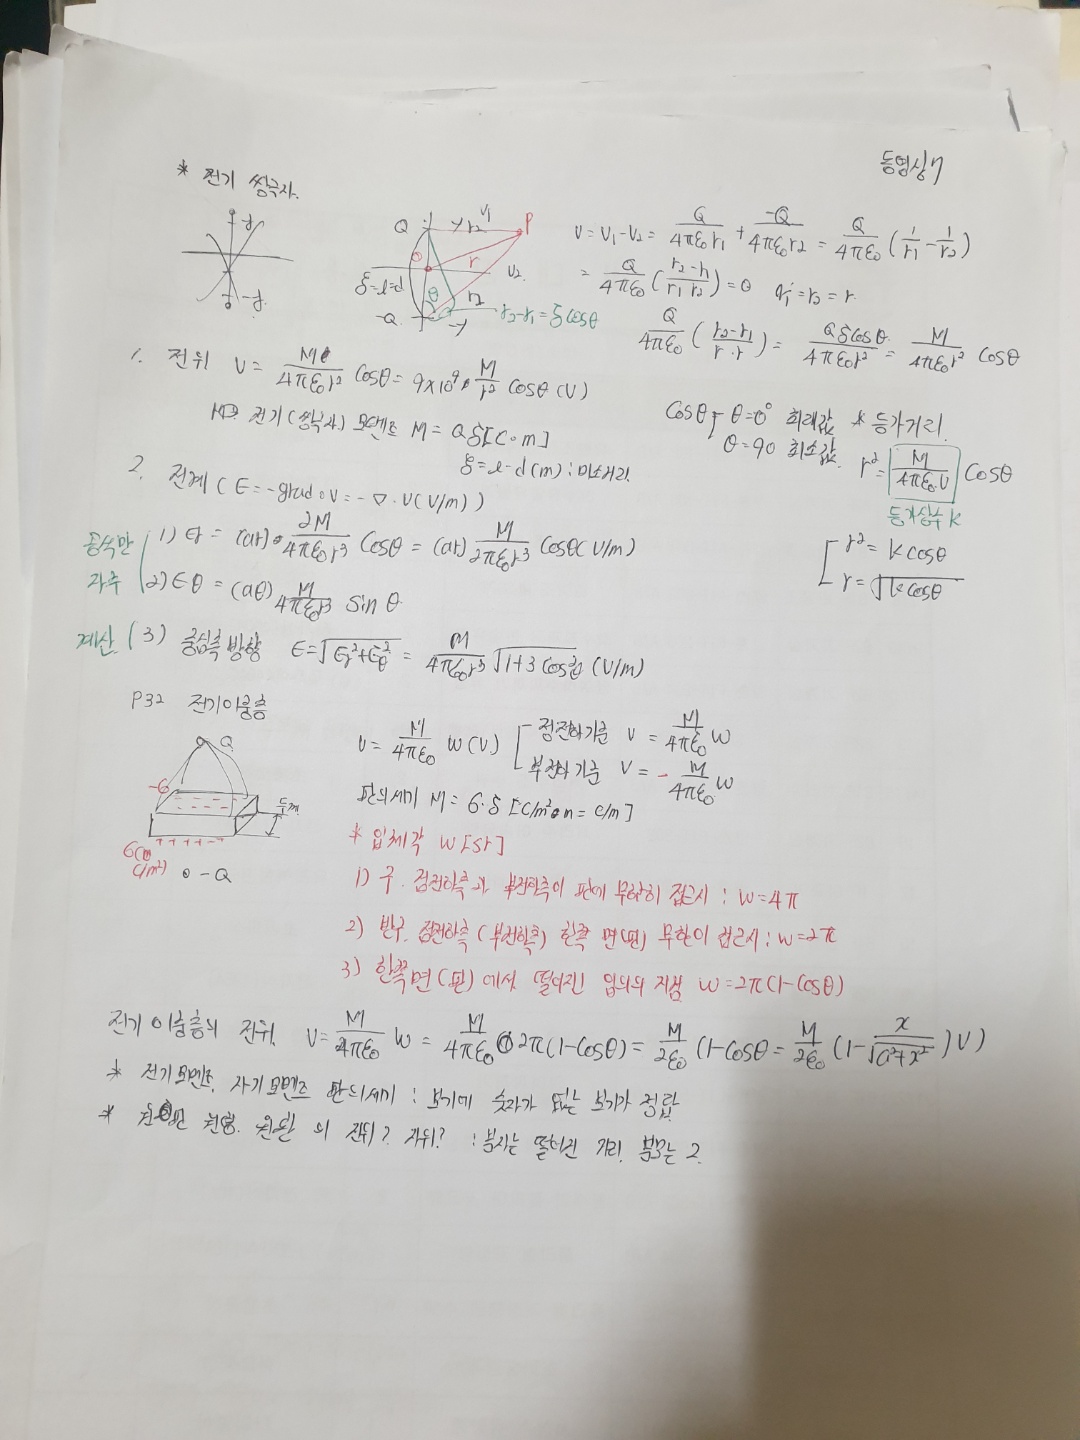 동영상7
* 전기 쌍극자.
V = V1-V2 = Q/4πε0r1 + -Q/4πε0r2 = Q/4πε0 (1/r1 - 1/r2)
= Q/4πε0 (r2-r1/r1 r2) = 0 r1=r2=r.
Q/4πε0 (r2-r1/r·r) = Qδcosθ/4πε0r² = M/4πε0r² cosθ
Q r2 V1 P
r V2
δ=l=d θ r2
-Q r2-r1 = δcosθ
1. 전위 V = M/4πε0r² cosθ = 9×10⁹ · M/r² cosθ (V)
M⇒ 전기(쌍극자) 모멘트 M = Qδ[C·m]
δ=l-d(m) : 미소거리.
cosθ θ=0° 최대값 * 등가거리.
θ=90 최소값. r² = M/4πε0·V cosθ
등가상수 k
r² = k cosθ
r = √k cosθ
2. 전계 ( E = -grad·V = -∇·V(V/m) )
공식만 1) Er = (ar)· 2M/4πε0r³ cosθ = (ar) M/2πε0r³ cosθ(V/m)
자주 2) Eθ = (aθ) M/4πε0r³ sin θ
계산 (3) 중심축 방향 E=√Er²+Eθ² = M/4πε0r³ √1+3cos²θ (V/m)
P32 전기이중층
V = M/4πε0 w (V) 정전하기준 V = M/4πε0 w
부전하기준 V = - M/4πε0 w
Q
-6 두께
+ + + + - +
6(
c/m²) -Q
판의세기 M = 6·δ [C/m²·m = c/m]
* 입체각 w[sr]
1) 구. 정전하측과 부전하측이 판에 무한히 접근시 : w=4π
2) 반구. 정전하측(부전하측) 한쪽 면(판) 무한이 접근시 : w=2π
3) 한쪽면(판)에서 떨어진 임의의 지점 w=2π(1-cosθ)
전기 이중층의 전위. V = M/4πε0 w = M/4πε0 2π(1-cosθ) = M/2ε0 (1-cosθ = M/2ε0 (1- x/√a²+x² )V)
* 전기모멘트, 자기모멘트 판의세기 : 보기에 숫자가 없는 보기가 정답
* 원형 의 전위? 자위? : 분자는 떨어진 거리. 분모는 2.